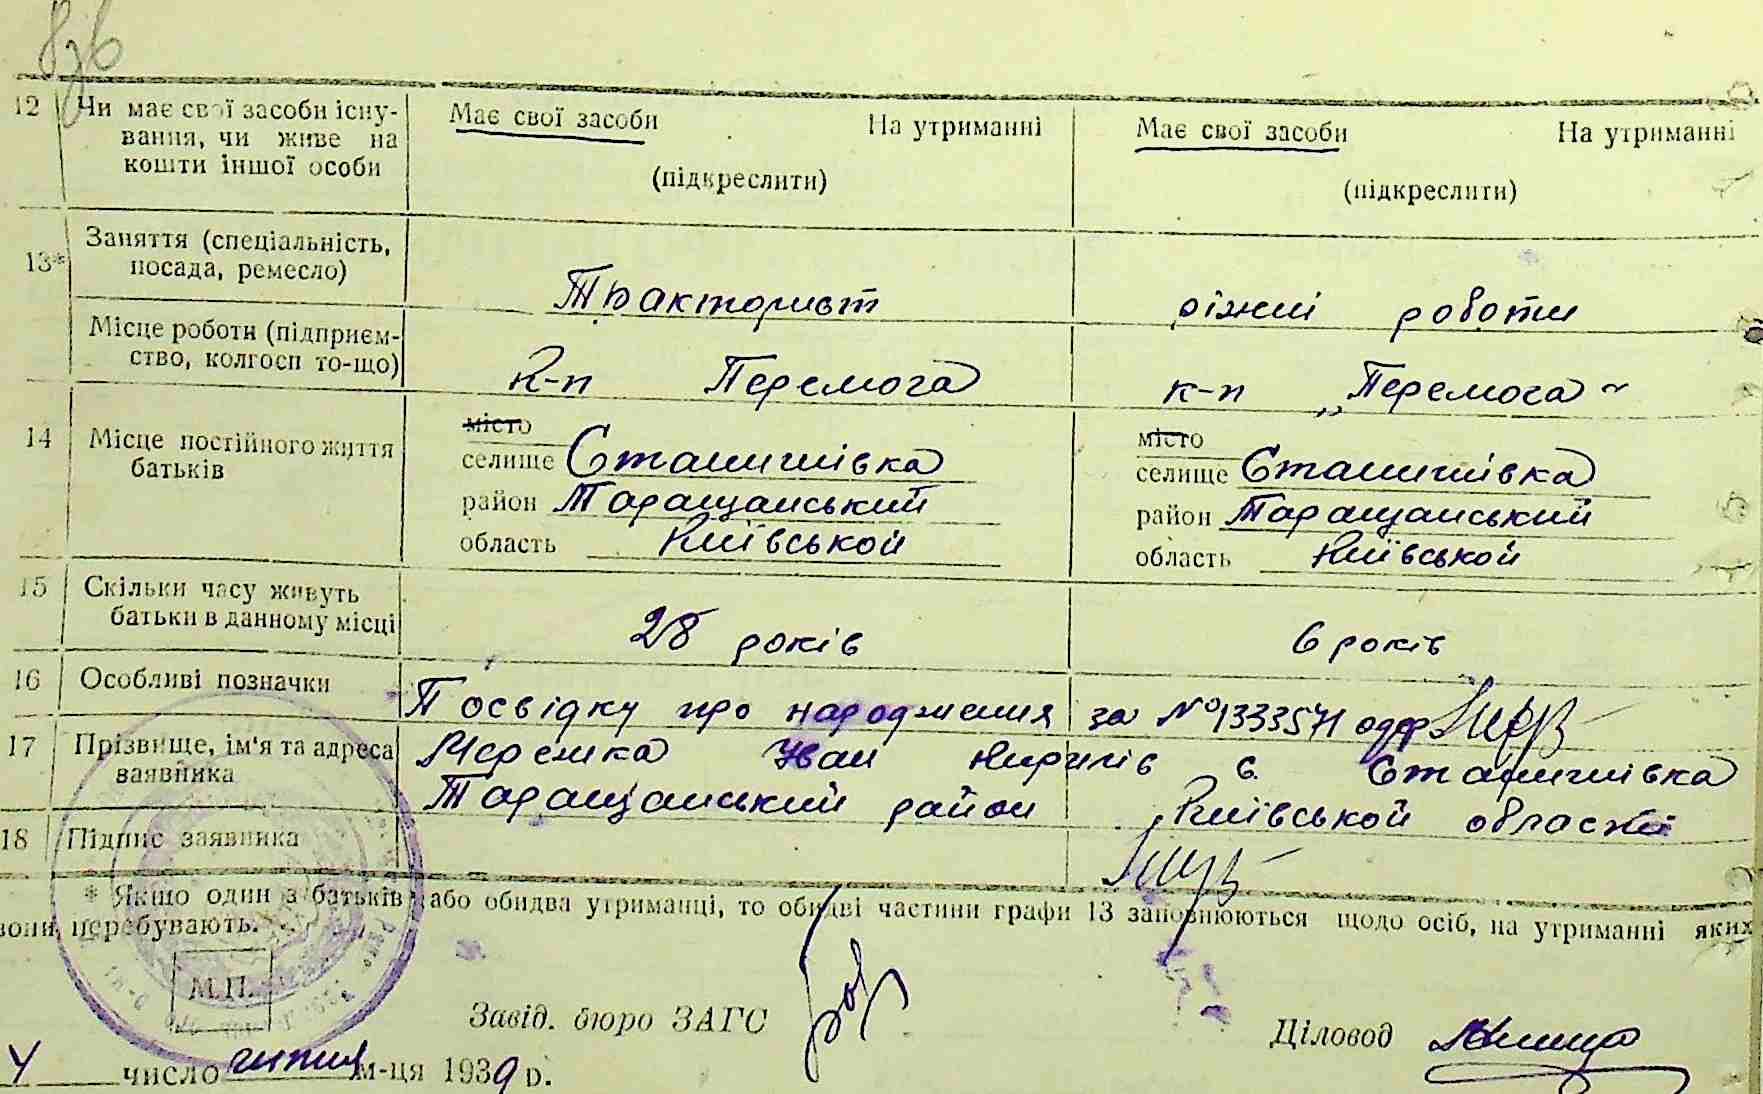 12 Чи має свої засоби існу-
вання, чи живе на
кошти іншої особи
Має свої засоби На утриманні
(підкреслити)
Має свої засоби На утриманні
(підкреслити)
13* Заняття (спеціальність,
посада, ремесло)
Тракторист
ріжні роботи
Місце роботи (підприєм-
ство, колгосп то-що)
к-п Перемога
к-п „Перемога"
14 Місце постійного життя
батьків
місто
селище Станишівка
район Таращанський
область Київської
місто
селище Станишівка
район Таращанський
область Київської
15 Скільки часу живуть
батьки в данному місці
28 років
6 років
16 Особливі позначки
Посвідку про народження за № 1333571 одер
17 Прізвище, ім'я та адреса
заявника
Мережка Іван Кирилів с. Станишівка
Таращанський район Київської області
18 Підпис заявника
* Якщо один з батьків або обидва утриманці, то обидві частини графи 13 заповнюються щодо осіб, на утриманні яких
вони перебувають.
М.П.
Завід. бюро ЗАГС
Діловод
4 число липня м-ця 1939 р.